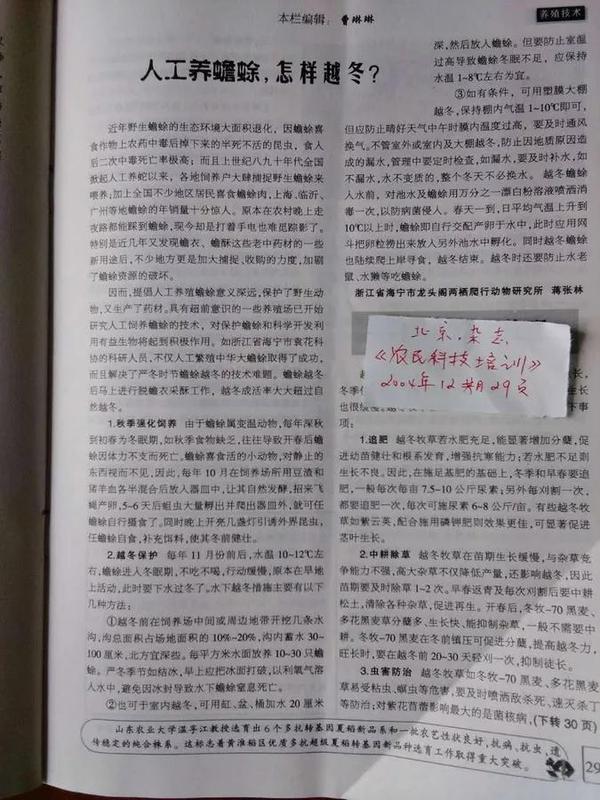 本栏编辑：曹琳琳
养殖技术
人工养蟾蜍，怎样越冬？
近年野生蟾蜍的生态环境大面积退化，因蟾蜍喜
食作物上农药中毒后掉下来的半死不活的昆虫，食入
后二次中毒死亡率极高；而且上世纪八九十年代全国
掀起人工养蛇以来，各地饲养户大肆捕捉野生蟾蜍来
喂养；加上全国不少地区居民喜食蟾蜍肉，上海、临沂、
广州等地蟾蜍的年销量十分惊人。原本在农村晚上走
夜路都能踩到蟾蜍，现今却是打着手电也难觅踪影了。
特别是近几年又发现蟾衣、蟾酥这些老中药材的一些
新用途后，不少地方更是加大捕捉、收购的力度，加剧
了蟾蜍资源的破坏。
因而，提倡人工养殖蟾蜍意义深远，保护了野生动
物，又生产了药材。具有超前意识的一些养殖场已开始
研究人工饲养蟾蜍的技术，对保护蟾蜍和科学开发利
用有益生物将起到积极作用。如浙江省海宁市袁花科
协的科研人员，不仅人工繁殖中华大蟾蜍取得了成功，
而且解决了严冬时节蟾蜍越冬的技术难题。蟾蜍越冬
后马上进行脱蟾衣采酥工作，越冬成活率大大超过自
然越冬。
1.秋季强化饲养 由于蟾蜍属变温动物，每年深秋
到初春为冬眠期，如秋季食物缺乏，往往导致开春后蟾
蜍因体力不支而死亡。蟾蜍喜食活的小动物，对静止的
东西视而不见，因此，每年10月在饲养场所用豆渣和
猪羊血各半混合后放入器皿中，让其自然发酵，招来飞
蝇产卵，5~6天后蛆虫大量孵出并爬出器皿外，就可任
蟾蜍自行摄食了。同时晚上开亮几盏灯引诱外界昆虫，
任蟾蜍自食，补充饵料，使其冬前健壮。
2.越冬保护 每年11月份前后，水温10~12℃左
右，蟾蜍进入冬眠期，不吃不喝，行动缓慢，原本在旱地
上活动，此时要下水过冬了。水下越冬措施主要有以下
几种方法：
①越冬前在饲养场中间或周边地带开挖几条水
沟，沟总面积占场地面积的10%~20%，沟内蓄水30~
100厘米，北方宜深些。每平方米水面放养10~30只蟾
蜍。严冬季节如结冰，早上应把冰面打破，以利氧气溶
入水中，避免因冰封导致水下蟾蜍窒息死亡。
②也可于室内越冬，可用缸、盆、桶加水20厘米
深，然后放入蟾蜍。但要防止室温
过高导致蟾蜍冬眠不足，应保持
水温1~8℃左右为宜。
③如有条件，可用塑膜大棚
越冬，保持棚内气温1~10℃即可，
但应防止晴好天气中午时膜内温度过高，要及时通风
换气。不管室外或室内及大棚越冬，防止因地质原因造
成的漏水，管理中要定时检查，如漏水，要及时补水，如
不漏水，水不变质的，整个冬天不必换水。越冬蟾蜍
入水前，对池水及蟾蜍用万分之一漂白粉溶液喷洒消
毒一次，以防病菌侵入。春天一到，日平均气温上升到
10℃以上时，蟾蜍即自行交配产卵于水中，此时应用网
斗把卵粒捞出来放入另外池水中孵化。同时越冬蟾蜍
也陆续爬上岸寻食，越冬结束。越冬时还要防止水老
鼠、水獭等吃蟾蜍。
浙江省海宁市龙头阁两栖爬行动物研究所 蒋张林
北京.杂志
《农民科技培训》
2004年12期29页
1.追肥 越冬牧草若水肥充足，能显著增加分蘖，促
进幼苗健壮和根系发育，增强抗寒能力；若水肥不足则
生长不良。因此，在施足基肥的基础上，冬季和早春要追
肥，一般每次每亩7.5~10公斤尿素；另外每刈割一次，
都要追肥一次，每次可施尿素6~8公斤/亩。有些越冬牧
草如紫云英，配合施用磷钾肥则效果更佳，可显著促进
茎叶生长。
2.中耕除草 越冬牧草在苗期生长缓慢，与杂草竞
争能力不强，高大杂草不仅降低产量，还影响越冬，因此
苗期要及时除草1~2次。早春返青及每次刈割后要中耕
松土，清除各种杂草，促进再生。开春后，冬牧-70黑麦、
多花黑麦草分蘖多、生长快、能抑制杂草，一般不需要中
耕。冬牧-70黑麦在冬前镇压可促进分蘖，提高越冬力，
旺长时，要在越冬前20~30天轻刈一次，抑制徒长。
3.虫害防治 越冬牧草如冬牧-70黑麦、多花黑麦
草易受粘虫、螟虫等危害，要及时喷洒敌杀死、速灭杀丁
等防治；对紫花苜蓿影响最大的是菌核病，(下转30页)
山东农业大学温孚江教授选育出6个多抗转基因夏稻新品系和一批农艺性状良好，抗病、抗虫，遗
传稳定的纯合株系。这标志着黄淮稻区优质多抗超级夏稻转基因新品种选育工作取得重大突破。
29